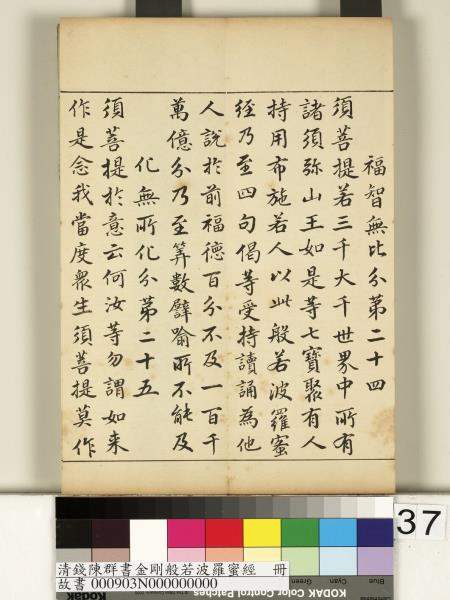 福智無比分第二十四
須菩提若三千大千世界中所有
諸須弥山王如是等七寶聚有人
持用布施若人以此般若波羅蜜
經乃至四句偈等受持讀誦為他
人說於前福德百分不及一百千
萬億分乃至筭數譬喻所不能及
化無所化分第二十五
須菩提於意云何汝等勿謂如来
作是念我當度衆生須菩提莫作
37
Blue
Cyan
Green
清錢陳群書金剛般若波羅蜜經 冊
故書 000903N000000000
KODAK Color Control Patches